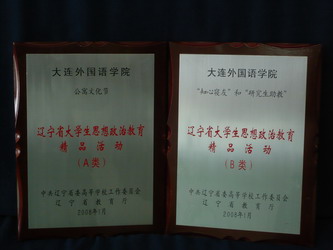 大连外国语学院
公寓文化节
辽宁省大学生思想政治教育
精品活动
（A类）
中共辽宁省委高等学校工作委员会
辽宁省教育厅
2008年1月
大连外国语学院
和“研究生助教”
辽宁省大学生思想政治教育
精品活动
（B类）
中共辽宁省委高等学校工作委员会
辽宁省教育厅
2008年1月